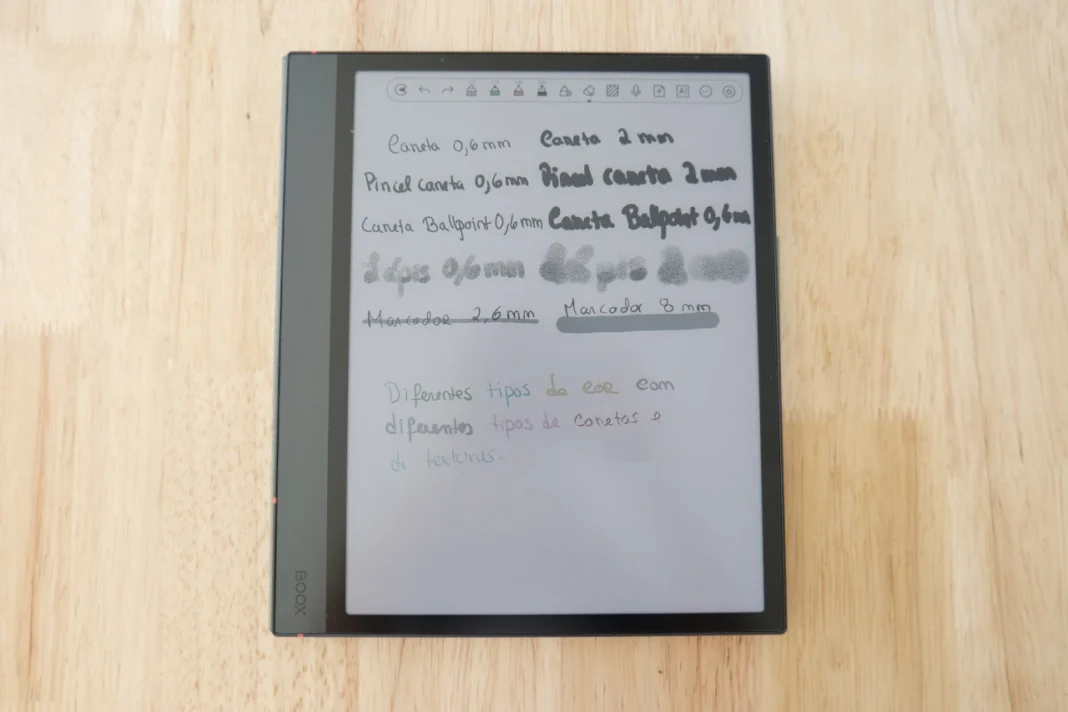 Caneta 0,6mm Caneta 2 mm
Pincel caneta 0,6mm Pincel caneta 2mm
Caneta Ballpoint 0,6mm Caneta Ballpoint 0,6m
Lápis 0,6mm
Marcador 2,6mm Marcador 8 mm
Diferentes tipos da cor com
diferentes tipos de canetas e
di texturas.
BOOX